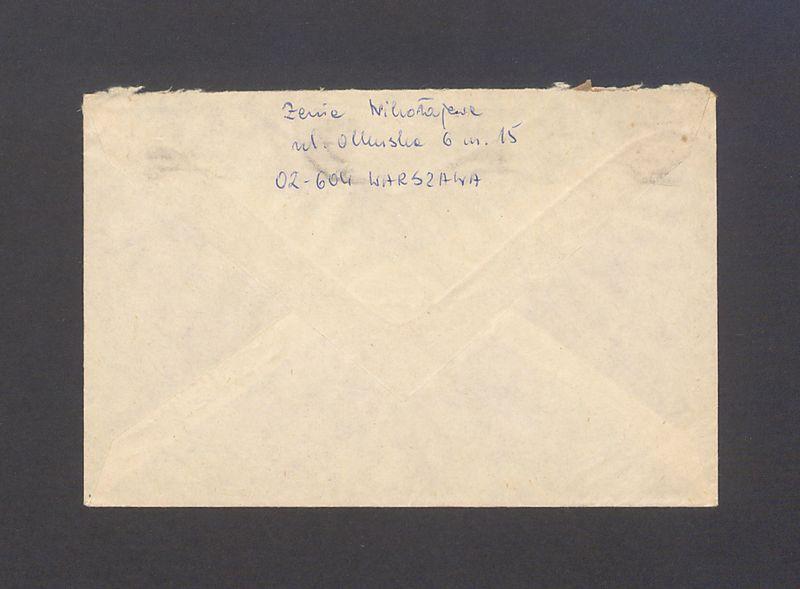 Żenia Nikołajewa
ul. Olkuska 6 m. 15
02-604 WARSZAWA